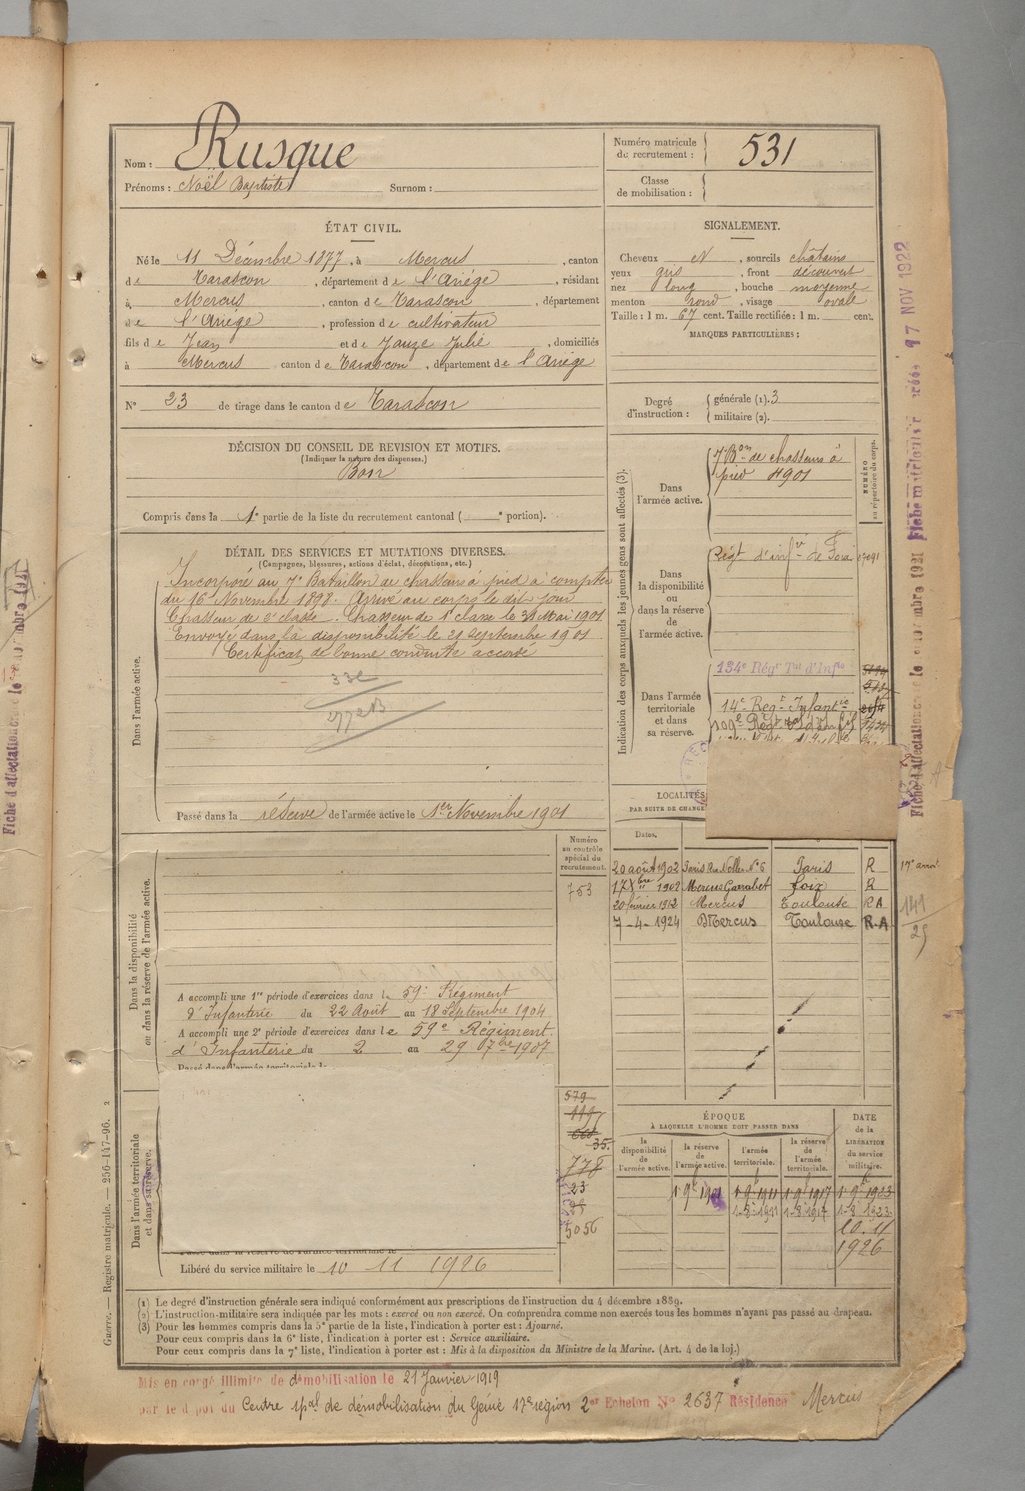 Nom : Rusque
Prénoms : Noël Baptiste Surnom :
Numéro matricule du recrutement : 531
Classe de mobilisation :
ÉTAT CIVIL.
Né le 11 Décembre 1877, à Mercus, canton
de Tarascon, département de l'Ariège, résidant
à Mercus, canton de Tarascon, département
de l'Ariège, profession de cultivateur
fils de Jean et de Jauze Julie, domiciliés
à Mercus canton de Tarascon, département de l'Ariège
N° 23 de tirage dans le canton de Tarascon
SIGNALEMENT.
Cheveux N, sourcils châtains
yeux gris, front découvert
nez long, bouche moyenne
menton rond, visage ovale
Taille : 1 m. 67 cent. Taille rectifiée : 1 m. cent.
MARQUES PARTICULIÈRES :
Degré d'instruction : générale (1). 3
militaire (2).
DÉCISION DU CONSEIL DE REVISION ET MOTIFS.
(Indiquer la nature des dispenses.)
Bon
Compris dans la 1e partie de la liste du recrutement cantonal ( e portion).
DÉTAIL DES SERVICES ET MUTATIONS DIVERSES.
(Campagnes, blessures, actions d'éclat, décorations, etc.)
Dans l'armée active.
Incorporé au 7e Bataillon de chasseurs à pied à compter
du 16 Novembre 1898. Arrivé au corps le dit jour
Chasseur de 2e classe. Chasseur de 1e classe le 31 Mai 1901
Envoyé dans la disponibilité le 21 septembre 1901
Certificat de bonne conduite accordé
Passé dans la réserve de l'armée active le 1er Novembre 1901
Indication des corps auxquels les jeunes gens sont affectés (3).
NUMÉRO au répertoire du corps.
Dans l'armée active.
7e Bon de chasseurs à
pied 4901
Dans la disponibilité ou dans la réserve de l'armée active.
Régt d'infie de Foix
Dans l'armée territoriale et dans sa réserve.
134e Régt Tal d'Infie
14e Regt Infantie
LOCALITÉS
PAR SUITE DE CHANGE
Dates.
20 août 1902 Paris Paris R 17e arrt
17 Xbre 1902 Mercus Garrabet Foix R
20 février 1912 Mercus Toulouse RA
7-4-1924 Mercus Toulouse R.A
141
Dans la disponibilité ou dans la réserve de l'armée active.
Numéro au contrôle spécial du recrutement.
753
A accompli une 1re période d'exercices dans le 59e Régiment
d'Infanterie du 22 Août au 18 Septembre 1904
A accompli une 2e période d'exercices dans le 59e Régiment
d'Infanterie du 2 au 29 7bre 1907
Dans l'armée territoriale et dans sa réserve.
579
35.
778
23
5056
Libéré du service militaire le 10 11 1926
ÉPOQUE
À LAQUELLE L'HOMME DOIT PASSER DANS
la disponibilité de l'armée active.
la réserve de l'armée active.
l'armée territoriale.
la réserve de l'armée territoriale.
DATE de la LIBÉRATION du service militaire.
1er 9bre 1901 1er 9bre 1911 1er 9bre 1917 1er 9bre 1923
1-8-1911 1-8-1917 1-8-1923
10.11
1926
(1) Le degré d'instruction générale sera indiqué conformément aux prescriptions de l'instruction du 4 décembre 1889.
(2) L'instruction militaire sera indiquée par les mots : exercé ou non exercé. On comprendra comme non exercés tous les hommes n'ayant pas passé au drapeau.
(3) Pour les hommes compris dans la 5e partie de la liste, l'indication à porter est : Ajourné.
Pour ceux compris dans la 6e liste, l'indication à porter est : Service auxiliaire.
Pour ceux compris dans la 7e liste, l'indication à porter est : Mis à la disposition du Ministre de la Marine. (Art. 4 de la loi.)
Guerre. — Registre matricule. — 256-147-96. 2
Mis en congé illimité de démobilisation le 21 Janvier 1919
par le dépôt du Centre ipal de démobilisation du Génie 17e région 2er Echelon N° 2637 Résidence Mercus
17 NOV 1922